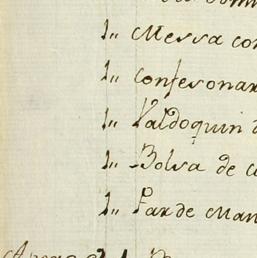 1,, Messa con
1,, Confesonar
1,, Valdoquin d
1,, Bolsa de c
1,, Par de Man